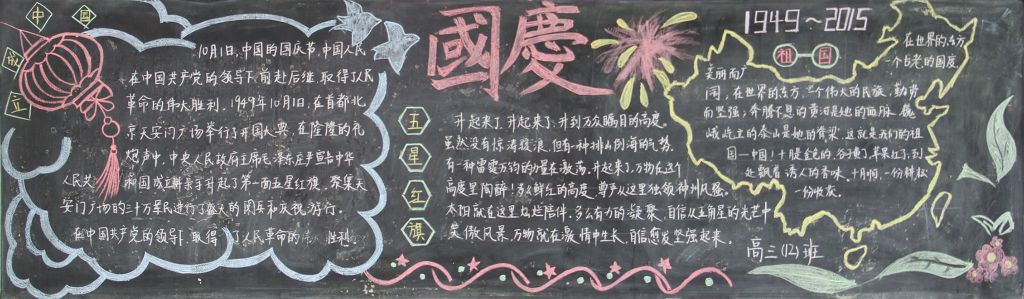 中国
成立
10月1日,中国的国庆节,中国人民
在中国共产党的领导下,前赴后继,取得了人民
革命的伟大胜利。1949年10月1日,在首都北
京天安门广场举行了开国大典,在隆隆的礼
炮声中,中央人民政府主席毛泽东庄严宣告中华
人民共和国成立并亲手升起了第一面五星红旗。聚集天
安门广场的三十万军民进行了盛大的阅兵和庆祝游行。
在中国共产党的领导下,取得了人民革命的 胜利
國慶
五
星
红
旗
升起来了,升起来了,升到万众瞩目的高度。
虽然没有惊涛骇浪,但有一种排山倒海的气势。
有一种雷霆万钧的力量在激荡,升起来了,万物在这个
高度里陶醉!多么鲜红的高度,尊严从这里独领神州风骚。
太阳就在这里灿烂陪伴。多么有力的凝聚,自信从五角星的光芒中
笑傲风景,万物就在激情中生长,自信愈发坚强起来。
1949~2015
祖国
在世界的东方
一个古老的国度
美丽而广
阔,在世界的东方,一个伟大的民族,勤劳
而坚强,奔腾不息的黄河是她的血脉,巍
峨屹立的泰山是她的脊梁,这就是我们的祖
国—中国!十月金色的,谷子黄了,苹果红了,到
处飘着诱人的香味,十月啊,一份耕耘
一份收获。
高三(12)班